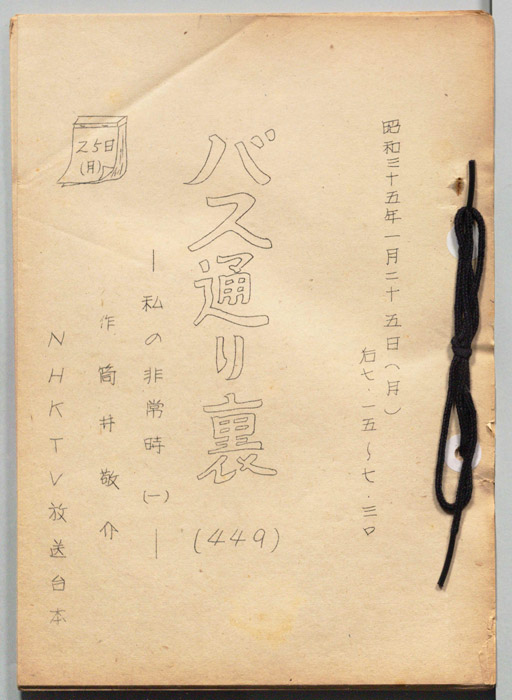 昭和三十五年一月二十五日(月)
后七・一五〜七・三〇
バス通り裏
(449)
―私の非常時(一)―
作 筒井敬介
NHKTV放送台本
25日
(月)